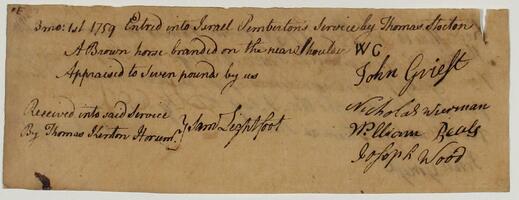 3mo: 1st 1759 Entred into Israel Pemberton's Service by Thomas Stocton
A Brown horse branded on the near Shoulder WG
Appraised to Seven pound by us
John Griest
Nicholas Wierman
William Beals
Joseph Wood
Received into said Service
By Thomas Kenton } Saml Lightfoot